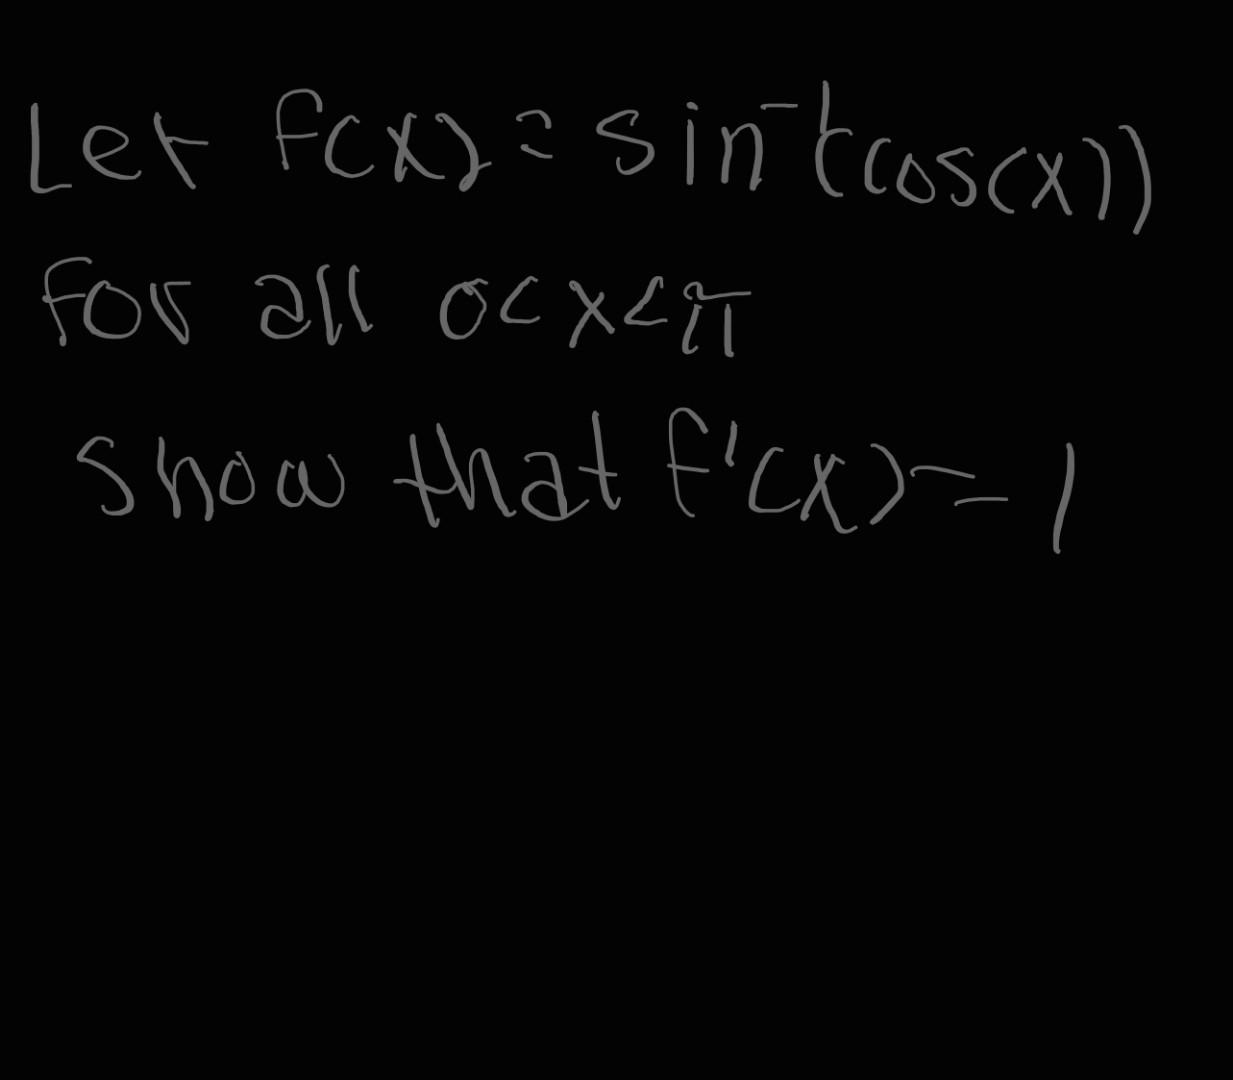 Let f(x) = sin⁻¹(cos(x))
for all 0<x<π
show that f'(x) = 1